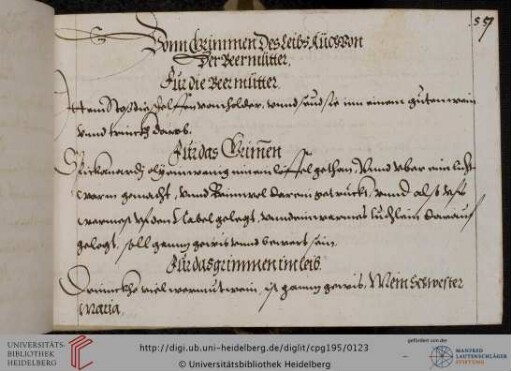 57
Vonn Grimmen Des Leibs Auch Von
Der Beermůtter.
Für die Beermůtter.
Item Stos die von holder, vnnd seud sie inn einem gůtten wein
vnnd trinckh darob.
Für das Grimen
ein wenig inn ein löffel gethan, Vnnd vber ein liecht
warm gemacht, vnnd Baumwol darein getruckt, vnnd also
warmes vf den Nabel gelegt, vnnd ein warmes tüchlein darauf
gelegt, soll ganntz gewis vnnd bewert sein.
Für das grimmen im leib.
Drinnckhe viel wermůt wein, ist ganntz gewis, Mein Schwester
Maria.
UNIVERSITÄTS-
BIBLIOTHEK
HEIDELBERG
http://digi.ub.uni-heidelberg.de/diglit/cpg195/0123
© Universitätsbibliothek Heidelberg
gefördert von der
MANFRED
LAUTENSCHLÄGER
STIFTUNG